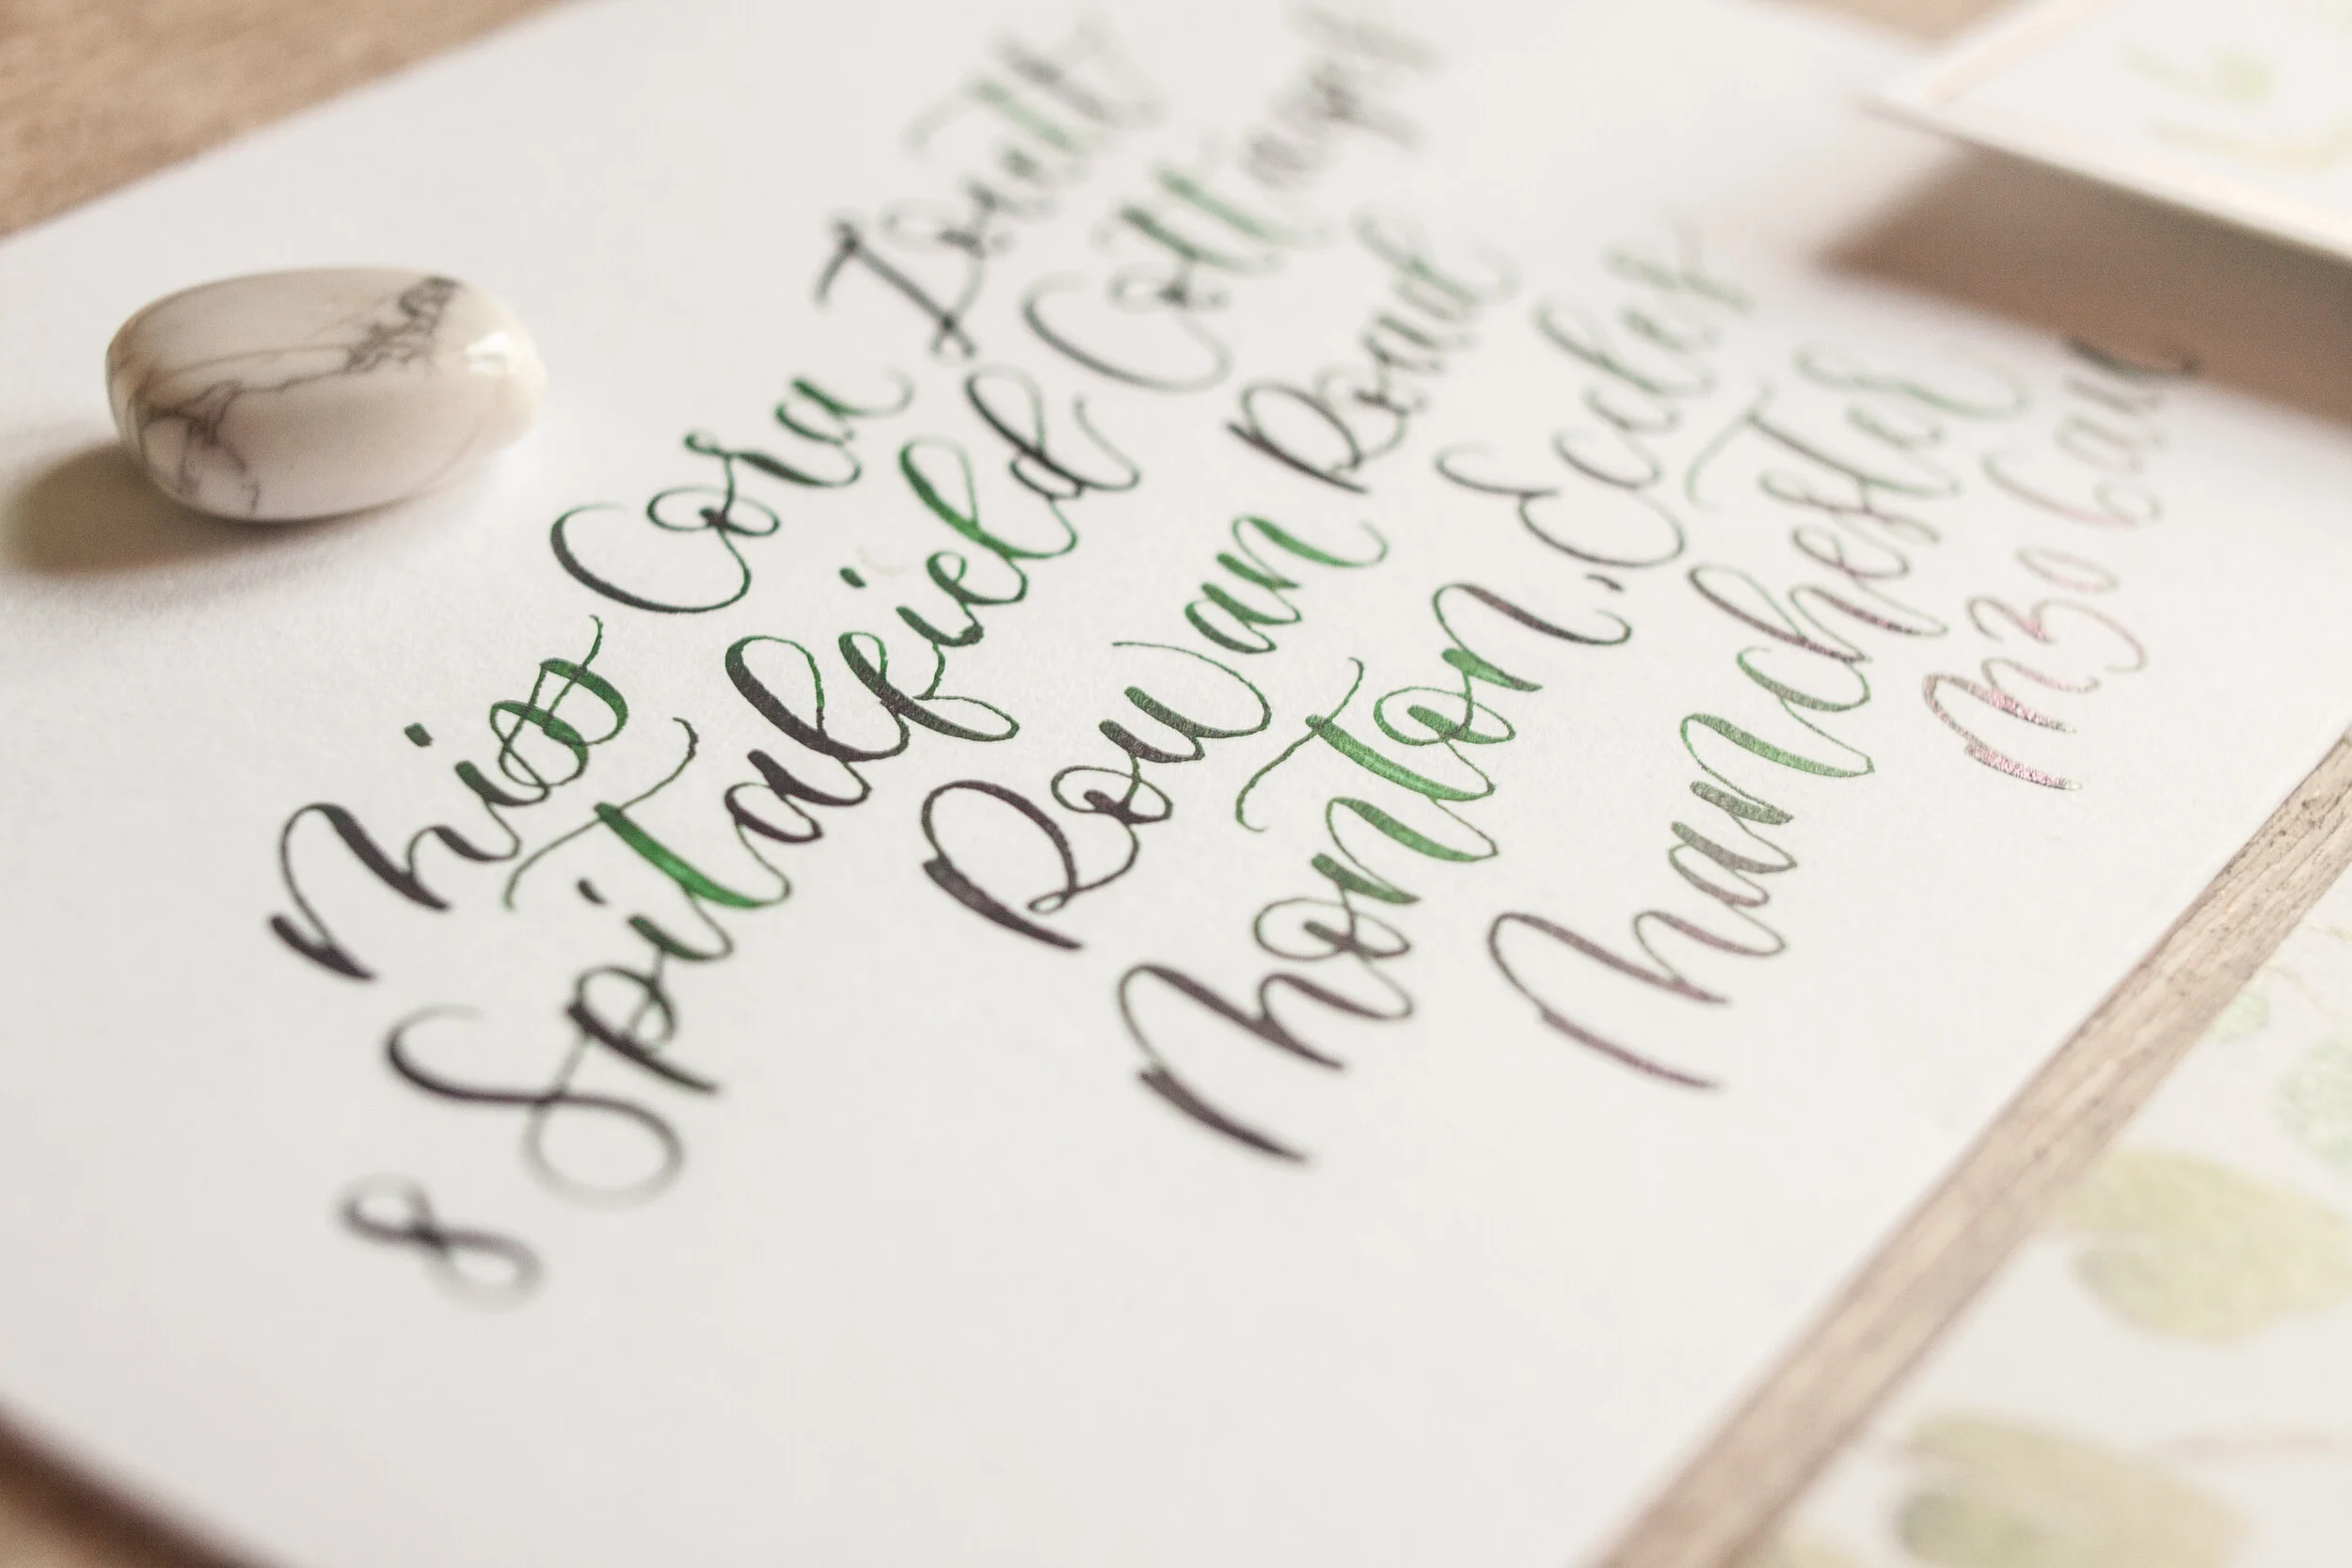 Miss Cora
8 Spitalfield Cottages
Rowan Road
Monton, Eccles
Manchester
M30